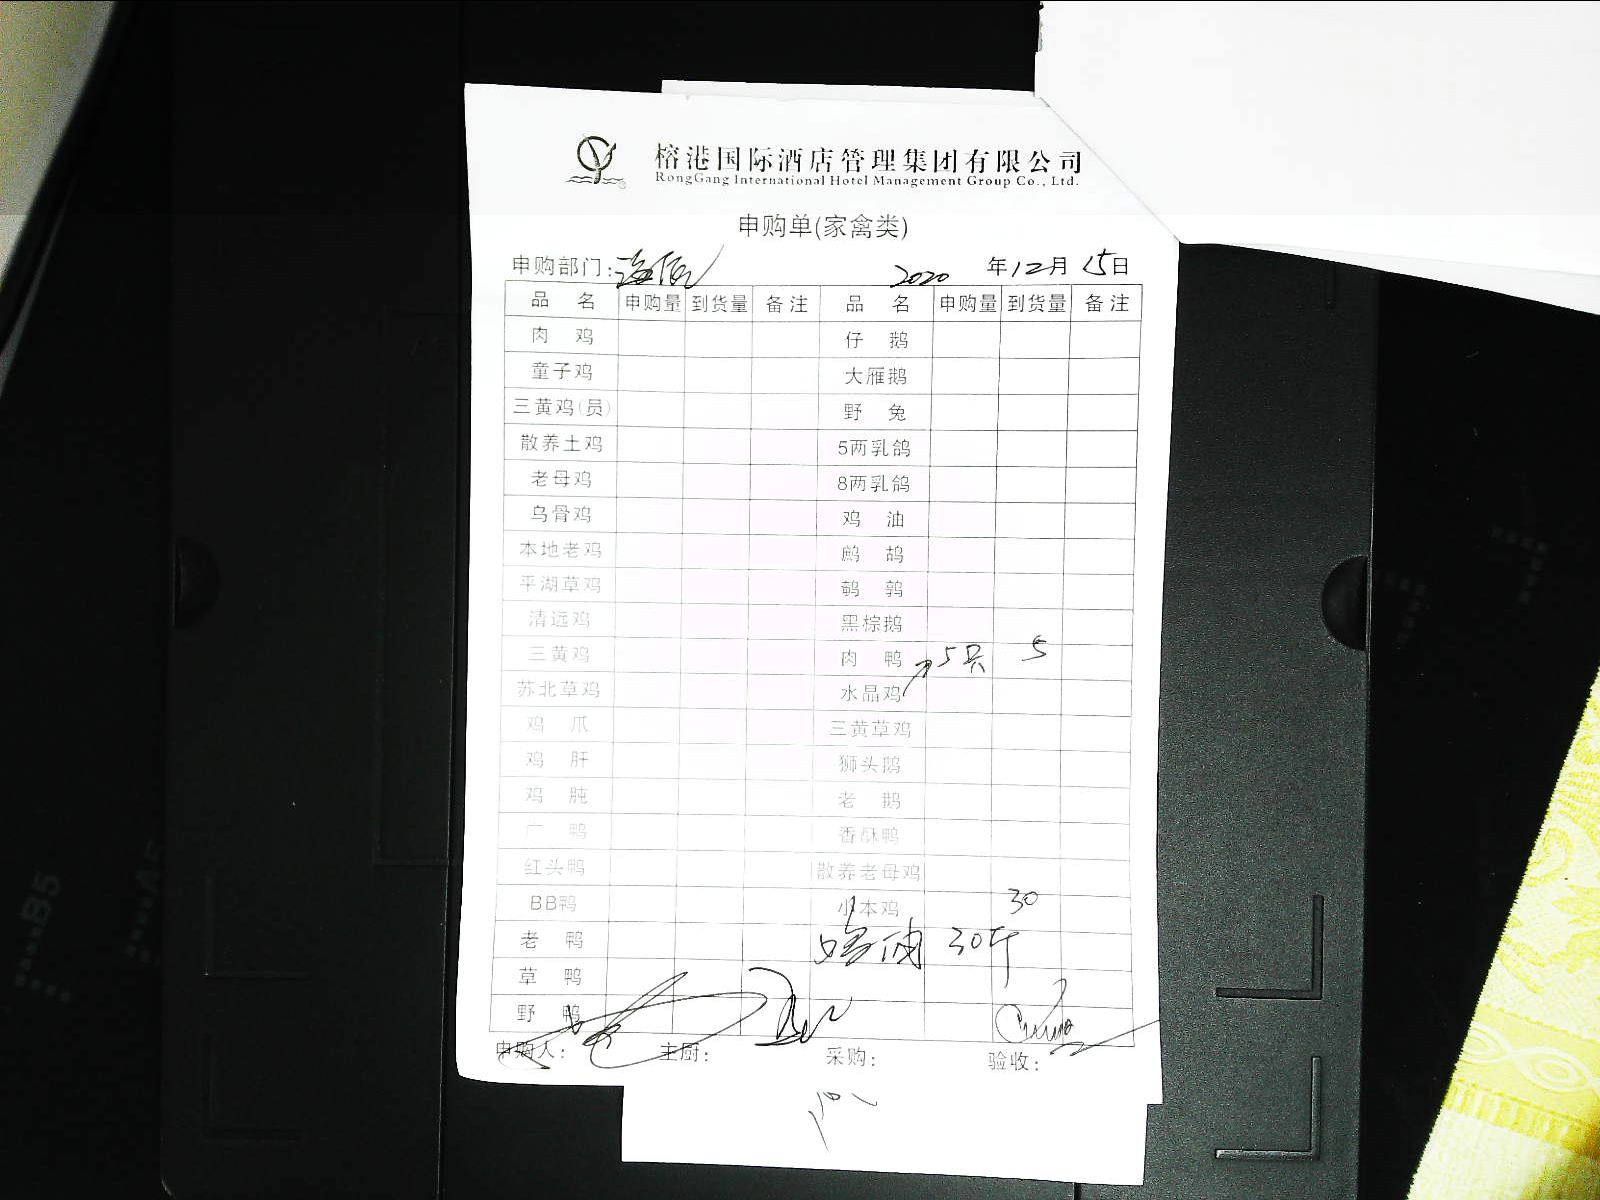 榕港国际酒店管理集团有限公司
RongGang International Hotel Management Group Co., Ltd.
申购单(家禽类)
申购部门: 2020 年12月15日
品 名 申购量 到货量 备注 品 名 申购量 到货量 备注
肉 鸡 仔 鹅
童子鸡 大雁鹅
三黄鸡(员) 野 兔
散养土鸡 5两乳鸽
老母鸡 8两乳鸽
乌骨鸡 鸡 油
本地老鸡 鹧 鸪
平湖草鸡 鹌 鹑
清远鸡 黑棕鹅
三黄鸡 肉 鸭 5只 5
苏北草鸡 水晶鸡
鸡 爪 三黄草鸡
鸡 肝 狮头鹅
鸡 肫 老 鹅
广 鸭 香酥鸭
红头鸭 散养老母鸡
BB鸭 小本鸡 30
老 鸭 鸡油 30斤
草 鸭
野 鸭
申购人: 主厨: 采购: 验收:
B5
A5